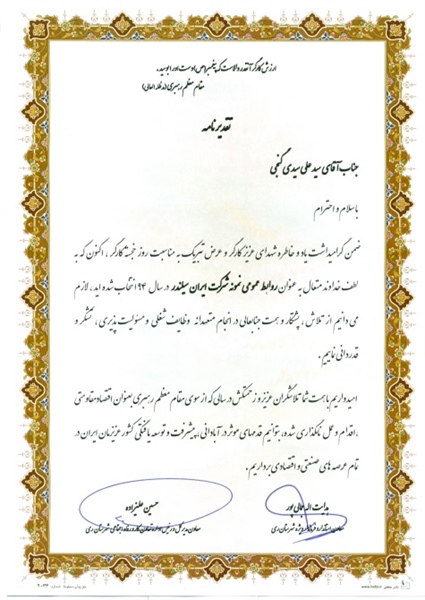 ارزش کارگر آنقدر والاست که پیغمبر(ص) دست او را بوسید.
مقام معظم رهبری (مدظله العالی)
تقدیرنامه
جناب آقای سید علی سیدی گنجی
با سلام و احترام
ضمن گرامیداشت یاد و خاطره شهدای عزیز کارگر و عرض تبریک به مناسبت روز خجسته کارگر، اکنون که به
لطف خداوند متعال به عنوان روابط عمومی نمونه شرکت ایران سیلندر در سال ۹۴ انتخاب شده اید، لازم
می دانیم از تلاش، پشتکار و همت جنابعالی در انجام متعهدانه وظایف شغلی و مسئولیت پذیری، تشکر و
قدردانی نماییم.
امیدواریم با همت شما تلاشگران عزیز و زحمتکش در سالی که از سوی مقام معظم رهبری بعنوان اقتصاد مقاومتی
، اقدام و عمل نامگذاری شده، بتوانیم قدمهای موثر در آبادانی، پیشرفت و توسعه یافتگی کشور عزیزمان ایران در
تمام عرصه های صنعتی و اقتصادی برداریم.
هدایت اله جمالی پور
معاون استاندار و فرماندار ویژه شهرستان ری
حسین علیزاده
معاون مدیرکل و رئیس اداره تعاون کار و رفاه اجتماعی شهرستان ری